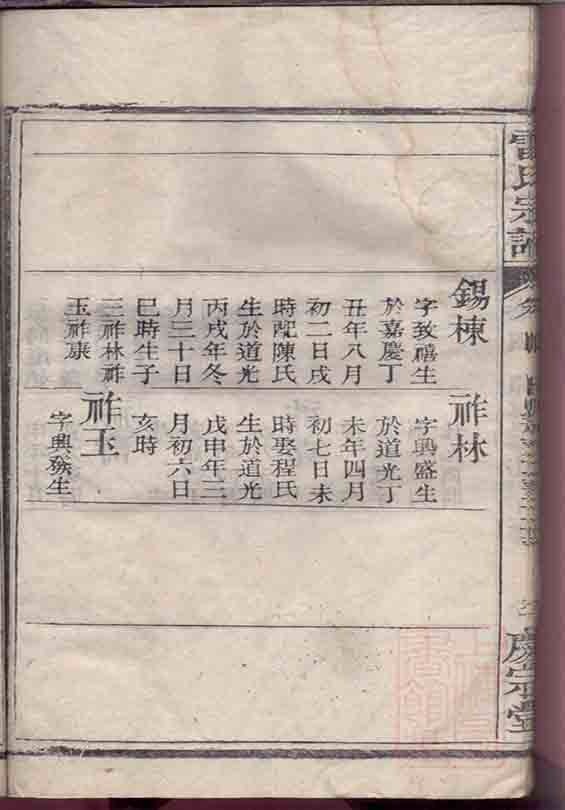 雷氏宗譜
慶宗堂
錫棟
字致禧生
於嘉慶丁
丑年八月
初二日戌
時配陳氏
生於道光
丙戌年冬
月三十日
巳時生子
三祚林祚
玉祚康
祚林
字興盛生
於道光丁
未年四月
初七日未
時娶程氏
生於道光
戊申年三
月初六日
亥時
祚玉
字興發生